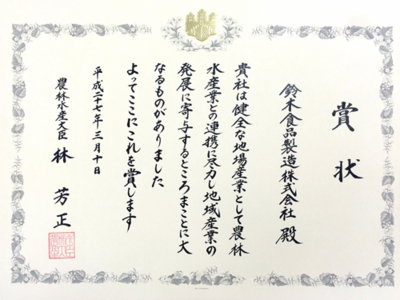 賞状
鈴木食品製造株式会社 殿
貴社は健全な地場産業として農林
水産業との連携に尽力し地域産業の
発展に寄与するところまことに大
なるものがありました
よってここにこれを賞します
平成二十七年三月十日
農林水産大臣 林 芳正